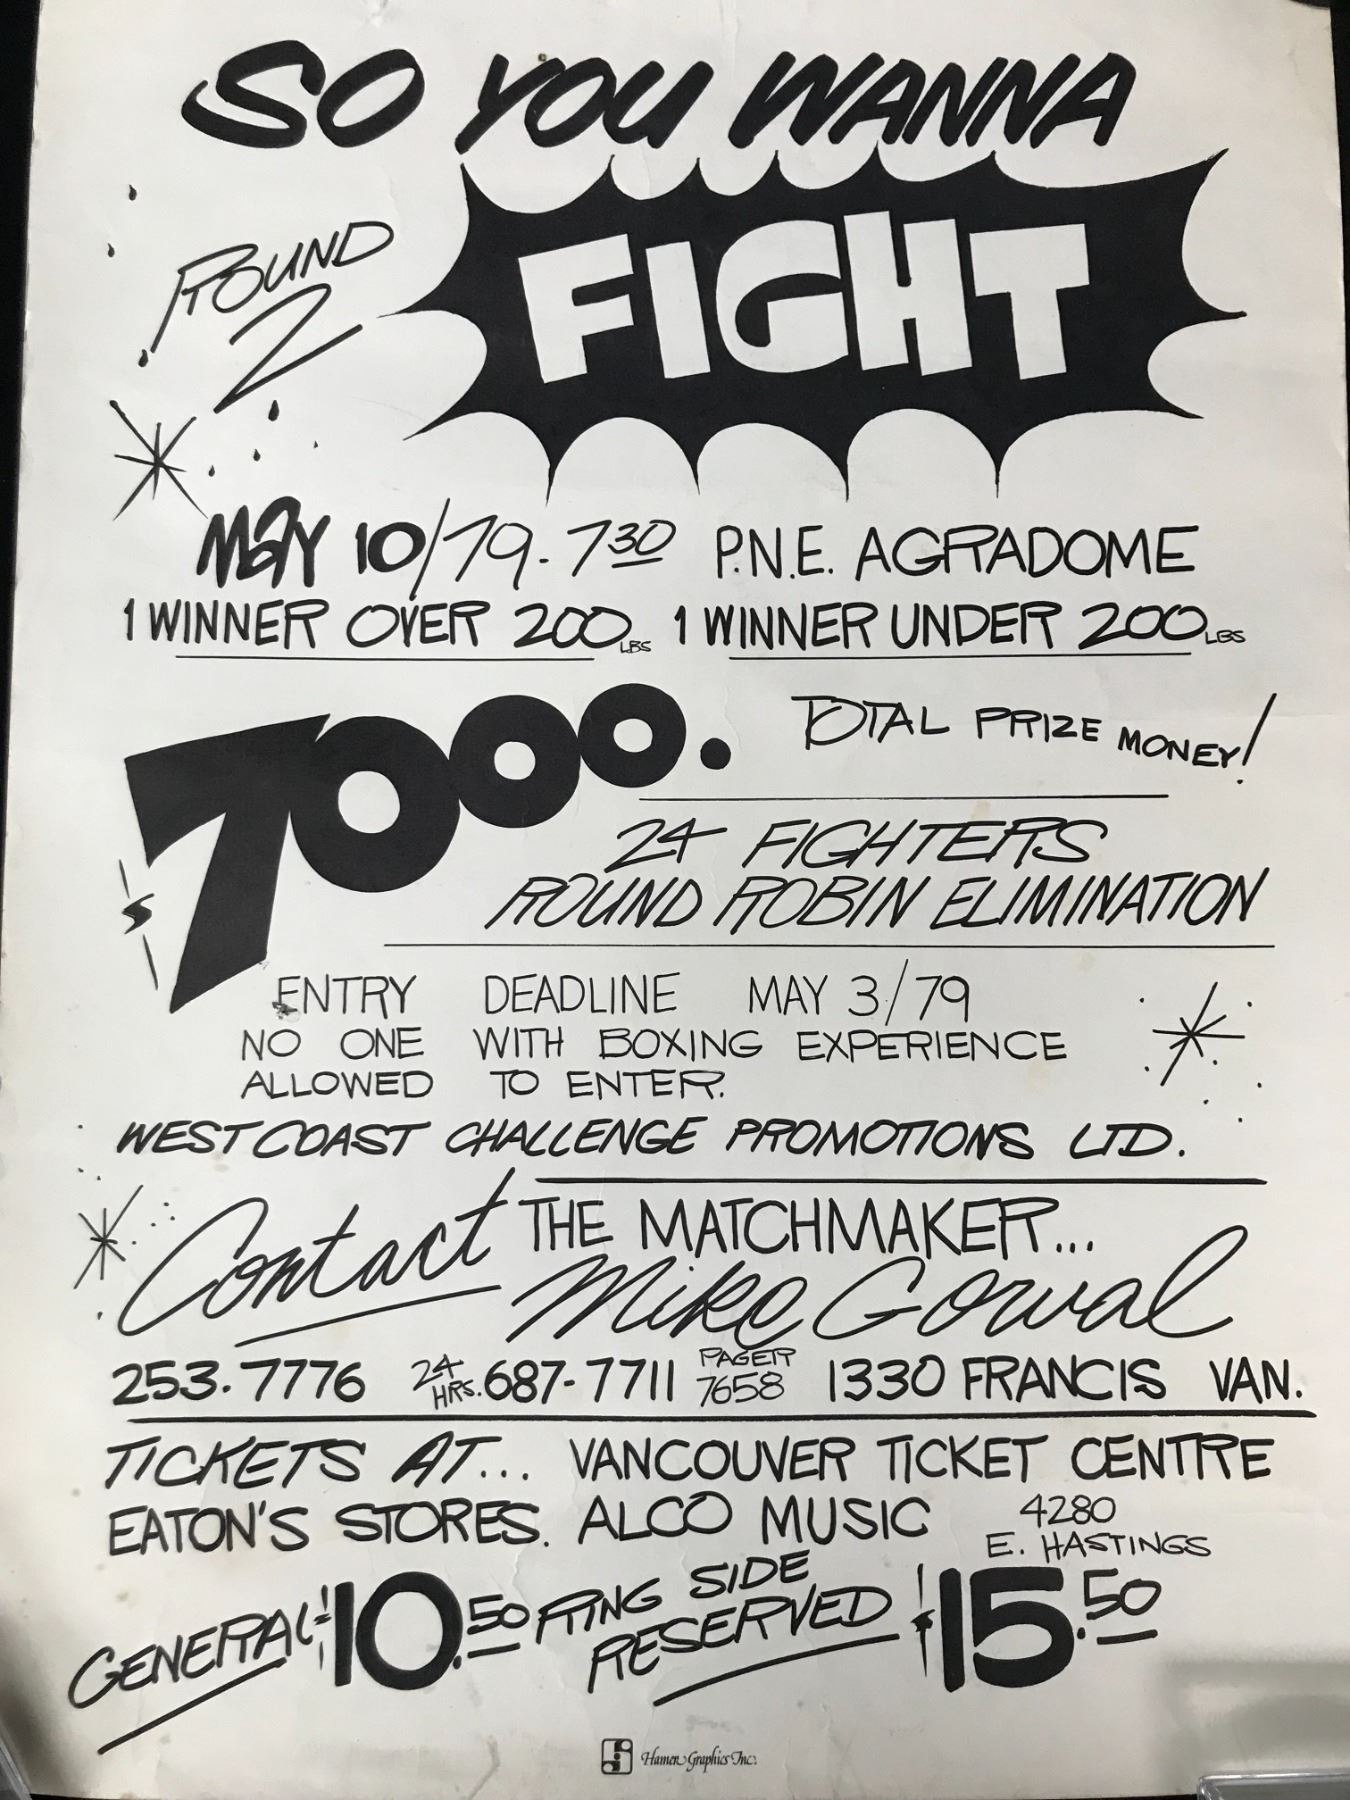 SO YOU WANNA
FIGHT
ROUND
2
MAY 10/79 - 7 30 P.N.E. AGRADOME
1 WINNER OVER 200 LBS 1 WINNER UNDER 200 LBS
$7000. TOTAL PRIZE MONEY!
24 FIGHTERS
ROUND ROBIN ELIMINATION
ENTRY DEADLINE MAY 3/79
NO ONE WITH BOXING EXPERIENCE
ALLOWED TO ENTER.
WEST COAST CHALLENGE PROMOTIONS LTD.
Contact THE MATCHMAKER...
Mike Gowal
253-7776 24 HRS. 687-7711 PAGER 7658 1330 FRANCIS VAN.
TICKETS AT... VANCOUVER TICKET CENTRE
EATON'S STORES. ALCO MUSIC 4280
E. HASTINGS
GENERAL $10.50 RING SIDE
RESERVED $15.50
Hamer Graphics Inc.